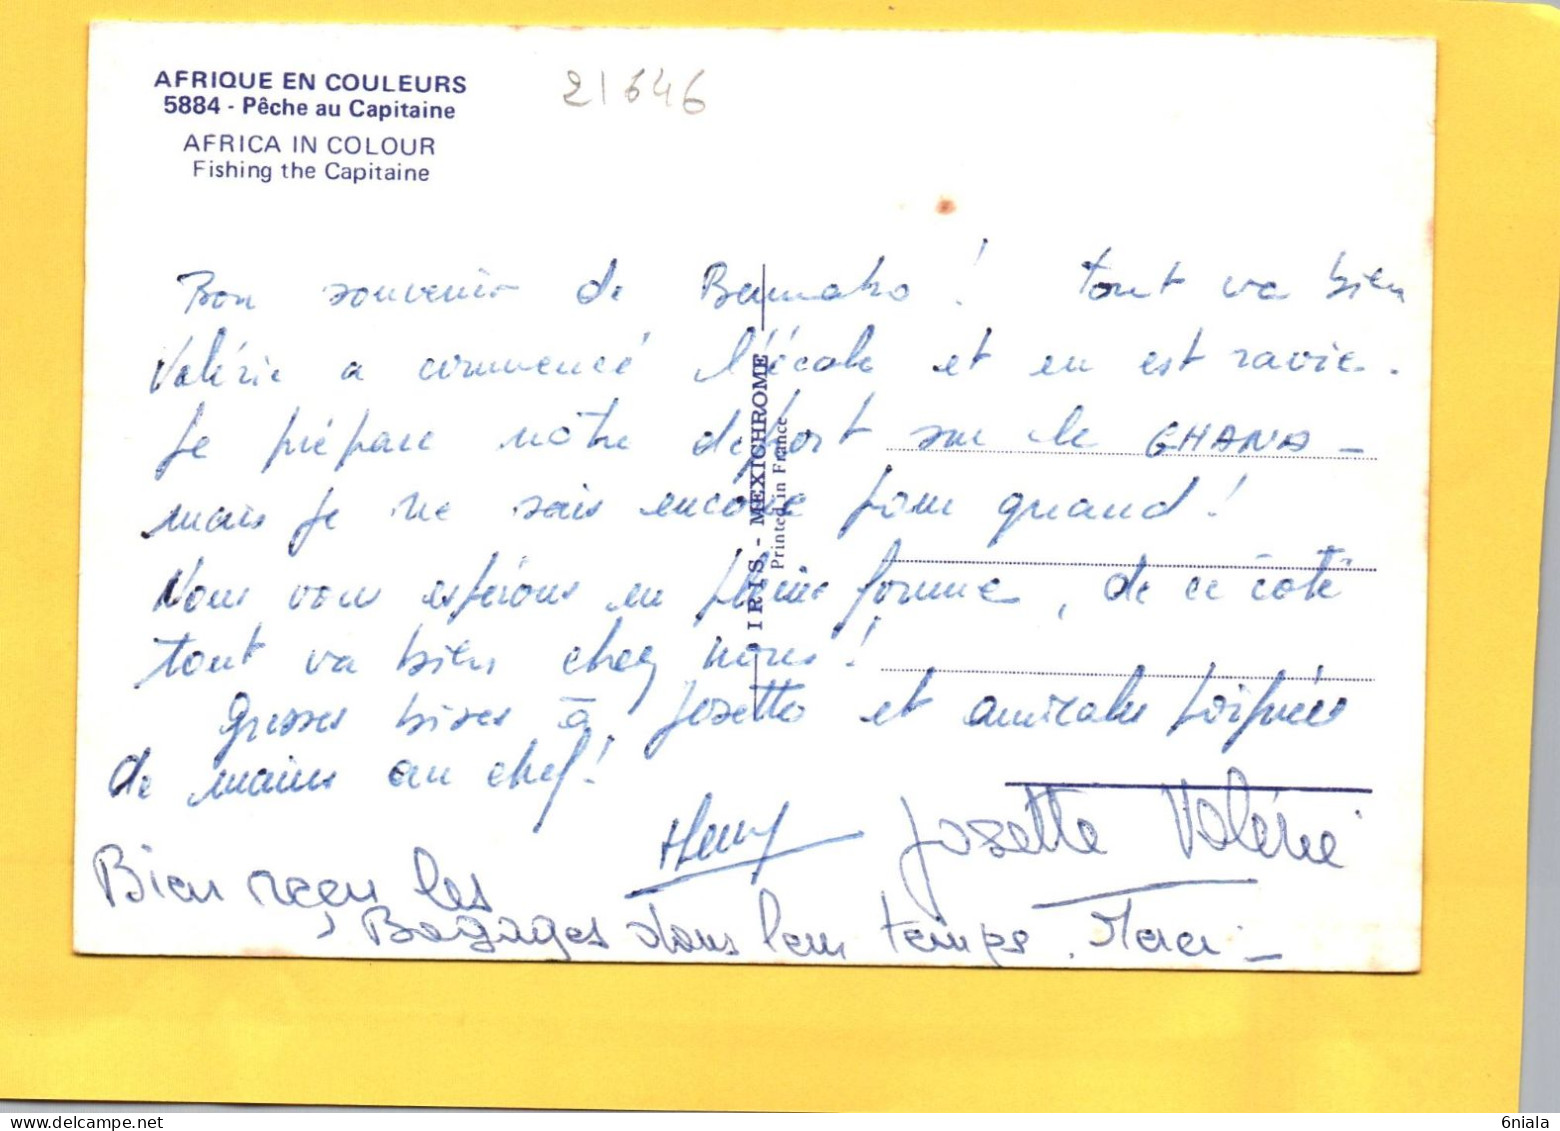 AFRIQUE EN COULEURS
5884 - Pêche au Capitaine
AFRICA IN COLOUR
Fishing the Capitaine
21646
Bon souvenir de Bamako ! tout va bien
Valérie a commencé l'école et en est ravie.
Je prépare nôtre départ sur le GHANA -
mais je ne sais encore pour quand !
Nous vous espérons en pleine forme, de ce côté
tout va bien chez nous !
Grosses bises à Josette et amicales poignées
de mains au chef !
Henry Josette Valérie
Bien reçu les
Bagages dans leur temps. Merci -
IRIS - MEXICHROME
Printed in France
6niala